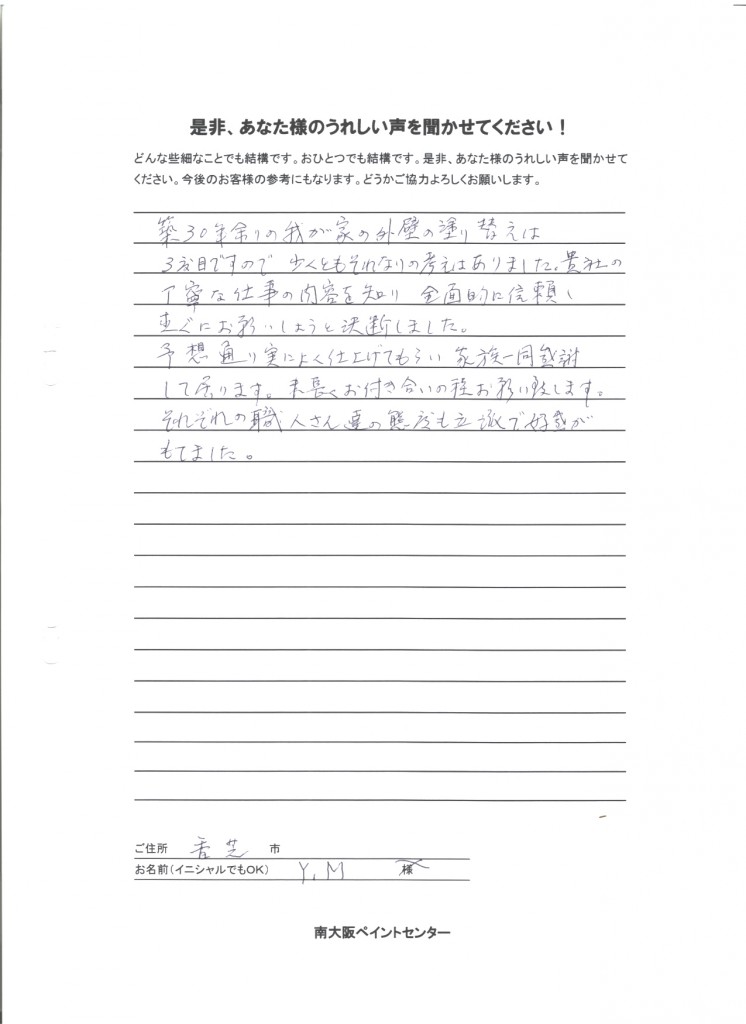 是非、あなた様のうれしい声を聞かせてください！
どんな些細なことでも結構です。おひとつでも結構です。是非、あなた様のうれしい声を聞かせて
ください。今後のお客様の参考にもなります。どうかご協力よろしくお願いします。
築30年余りの我が家の外壁の塗り替えは
3度目ですので 少くともそれなりの考えはありました。貴社の
丁寧な仕事の内容を知り 全面的に信頼し
直ぐにお願いしようと決断しました。
予想通り実によく仕上げてもらい 家族一同感謝
して居ります。末長くお付き合いの程お願い致します。
それぞれの職人さん達の態度も立派で好感が
もてました。
ご住所 香芝 市
お名前(イニシャルでもOK) Y.M 様
南大阪ペイントセンター